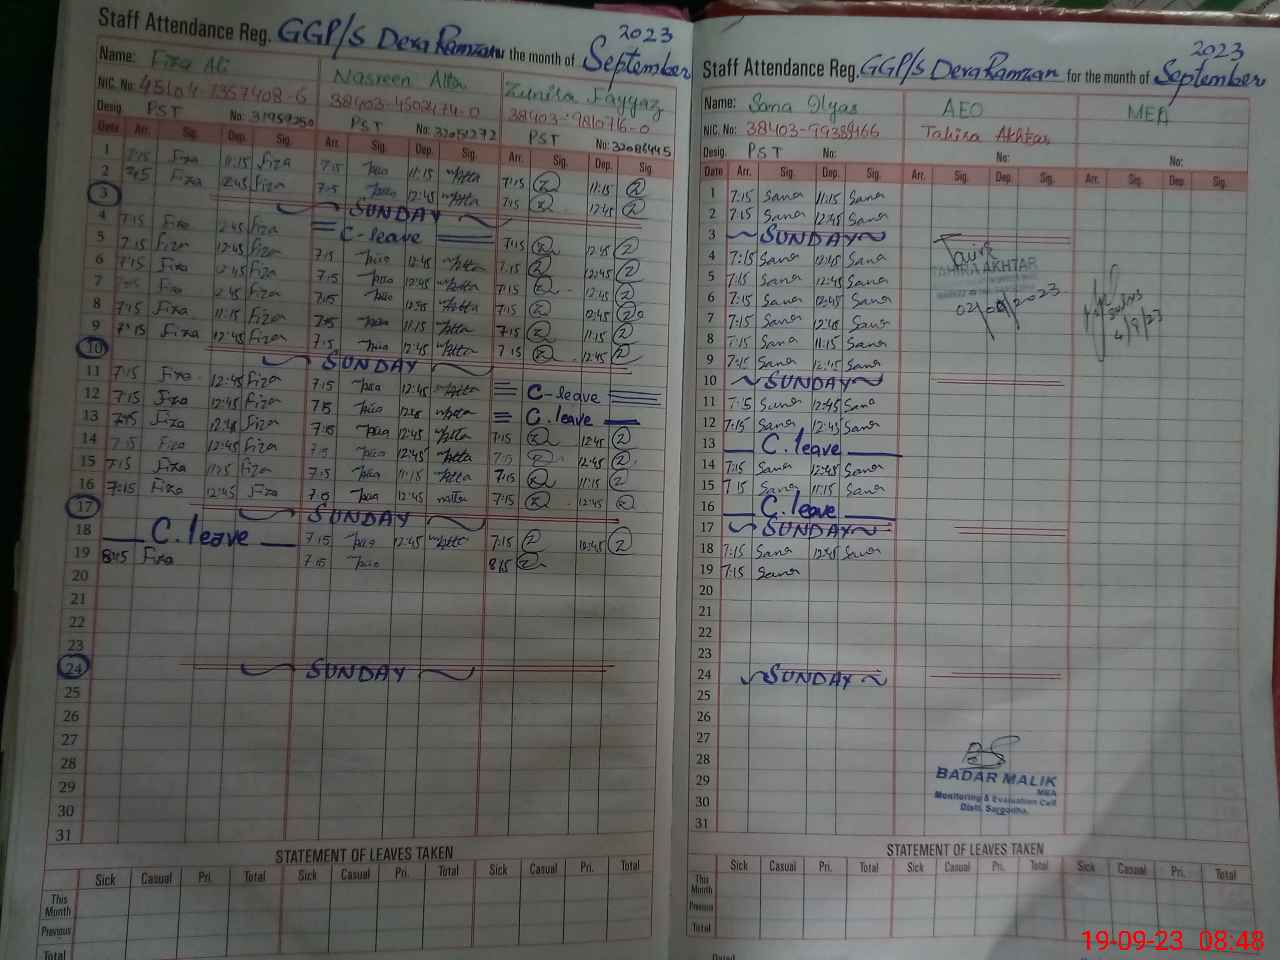 Staff Attendance Reg. GGP/S Dera Ramzan for the month of September 2023
Name: Fiza Ali Nasreen Atta Zunira Fayyaz
NIC. No: 38403-4502474-0 38403-9810716-0
Desig. PST No: 31959250 PST No: 32051272 PST No: 32086445
Date Arr. Sig. Dep. Sig. Arr. Sig. Dep. Sig. Arr. Sig. Dep. Sig.
1 7:15 Fiza 11:15 Fiza 7:15 11:15 7:15 11:15
2 7:15 Fiza 12:45 Fiza 7:15 12:45 7:15 12:45
3 SUNDAY
4 7:15 Fiza 12:45 Fiza C-leave 7:15 12:45
5 7:15 Fiza 12:45 Fiza 7:15 12:45 7:15 12:45
6 7:15 Fiza 12:45 Fiza 7:15 12:45 7:15 12:45
7 7:15 Fiza 12:45 Fiza 7:15 12:45 7:15 12:45
8 7:15 Fiza 11:15 Fiza 7:15 11:15 7:15 11:15
9 7:15 Fiza 12:45 Fiza 7:15 12:45 7:15 12:45
10 SUNDAY
11 7:15 Fiza 12:45 Fiza 7:15 12:45 C-leave
12 7:15 Fiza 12:45 Fiza 7:15 12:45 C.leave
13 7:15 Fiza 12:45 Fiza 7:15 12:45 7:15 12:45
14 7:15 Fiza 12:45 Fiza 7:15 12:45 7:15 12:45
15 7:15 Fiza 11:15 Fiza 7:15 11:15 7:15 11:15
16 7:15 Fiza 12:45 Fiza 12:45 7:15 12:45
17 SUNDAY
18 C.leave 7:15 12:45 7:15 12:45
19 8:45 Fiza 7:15 8:15
20
21
22
23
24 SUNDAY
25
26
27
28
29
30
31
STATEMENT OF LEAVES TAKEN
Sick Casual Pri. Total Sick Casual Pri. Total Sick Casual Pri. Total
This Month
Previous
Total
Staff Attendance Reg. GGP/S Dera Ramzan for the month of September 2023
Name: Sana Ilyas AEO MEA
NIC. No: Tahira Akhtar
Desig. PST No: No: No:
Date Arr. Sig. Dep. Sig. Arr. Sig. Dep. Sig. Arr. Sig. Dep. Sig.
1 7:15 Sana 11:15 Sana
2 7:15 Sana 12:45 Sana
3 SUNDAY
4 7:15 Sana 12:45 Sana
5 7:15 Sana 12:45 Sana
6 7:15 Sana 12:45 Sana
7 7:15 Sana 12:45 Sana
8 7:15 Sana 11:15 Sana
9 7:15 Sana 12:45 Sana
10 SUNDAY
11 7:15 Sana 12:45 Sana
12 7:15 Sana 12:45 Sana
13 C.leave
14 7:15 Sana 12:45 Sana
15 7:15 Sana 11:15 Sana
16 C.leave
17 SUNDAY
18 7:15 Sana 12:45 Sana
19 7:15 Sana
20
21
22
23
24 SUNDAY
25
26
27
28
29
30
31
TAHIRA AKHTAR
02/09/2023
4/9/23
BADAR MALIK
MEA
Monitoring & Evaluation Cell
Distt. Sargodha.
STATEMENT OF LEAVES TAKEN
Sick Casual Pri. Total Sick Casual Pri. Total
This Month
Previous
Total
Dated
19-09-23 08:48